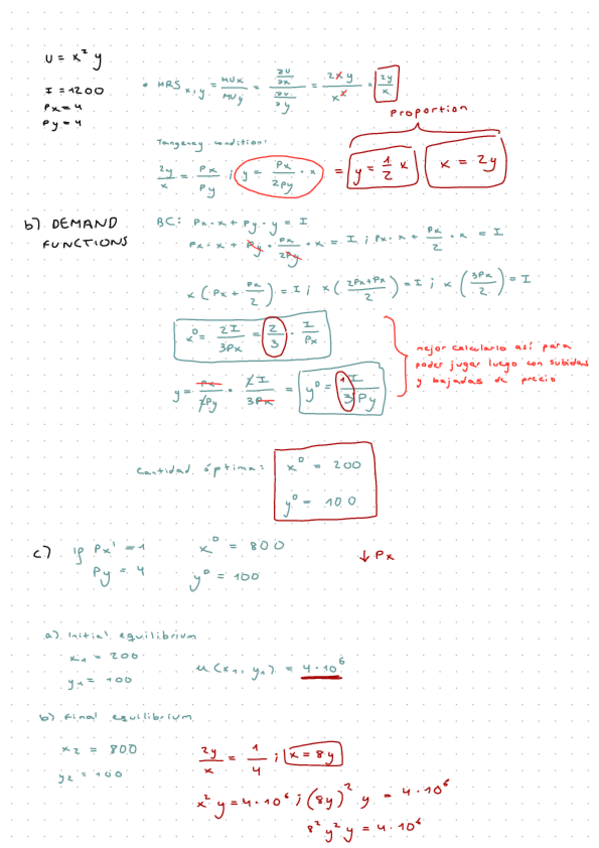 U = x² y
I = 1200
Px = 4
Py = 4
• MRS x,y = MUx / MUy = (∂U/∂x) / (∂U/∂y) = 2xy / x² = 2y / x
Proportion
Tangency condition:
2y / x = Px / Py ; y = Px / 2Py · x = y = 1/2 x x = 2y
b) DEMAND FUNCTIONS
BC: Px · x + Py · y = I
Px · x + Py · Px / 2Py · x = I ; Px · x + Px / 2 · x = I
x ( Px + Px / 2 ) = I ; x ( 2Px + Px / 2 ) = I ; x ( 3Px / 2 ) = I
x⁰ = 2I / 3Px = 2/3 · I / Px
mejor calcularlo así para
poder jugar luego con subidas
y bajadas de precio
y = Px / 2Py · 2I / 3Px = y⁰ = 1 I / 3 Py
Cantidad óptima: x⁰ = 200
y⁰ = 100
c) if Px' = 1 x⁰ = 800 ↓ Px
Py = 4 y⁰ = 100
a) Initial equilibrium
x₁ = 200
y₁ = 100
u (x₁, y₁) = 4·10⁶
b) Final equilibrium
x₂ = 800
y₂ = 100
2y / x = 1 / 4 ; x = 8y
x² y = 4·10⁶ ; (8y)² y = 4·10⁶
8² y² y = 4·10⁶